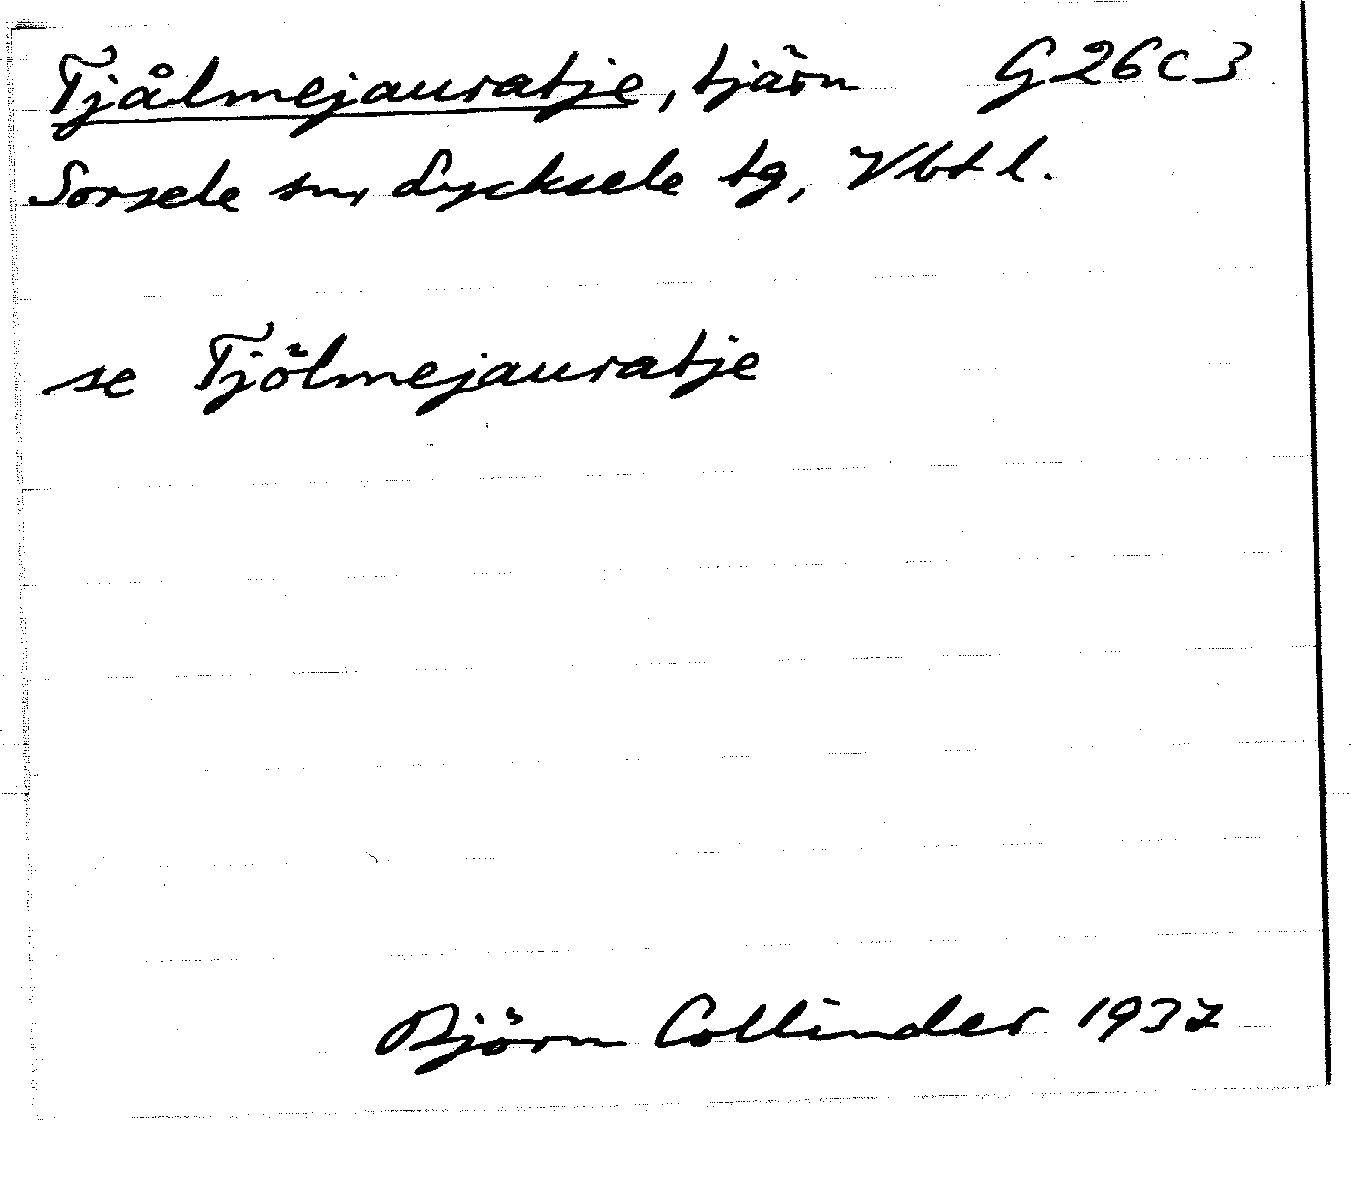 Tjålmejauratje, tjärn G 26 C 3
Sorsele sn, Lycksele tg, Vbt l.
se Tjölmejauratje
Björn Collinder 1937